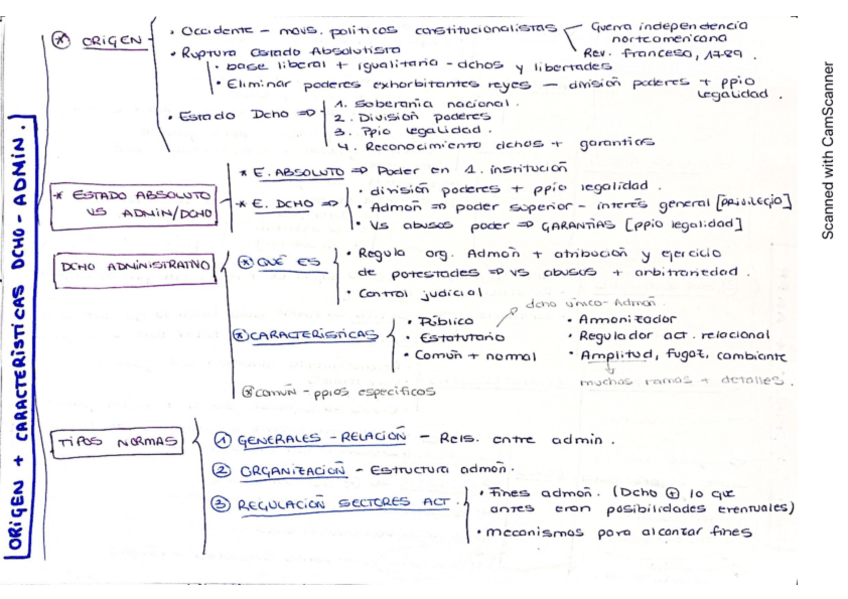 ORIGEN + CARACTERÍSTICAS DCHO-ADMIN.
* ORIGEN
• Occidente - movs. políticos constitucionalistas
Guerra independencia
norteamericana
Rev. francesa, 1789.
• Ruptura Estado Absolutista
• base liberal + igualitaria - dchos y libertades
• Eliminar poderes exhorbitantes reyes — división poderes + ppio
legalidad.
• Estado Dcho ⇒
1. Soberanía nacional.
2. División poderes
3. Ppio legalidad.
4. Reconocimiento dchos + garantías
* ESTADO ABSOLUTO
VS ADMIN/DCHO
* E. ABSOLUTO ⇒ Poder en 1. institución
* E. DCHO ⇒
• división poderes + ppio legalidad.
• Admon ⇒ poder superior - interés general [privilegio]
• Vs abusos poder ⇒ GARANTÍAS [ppio legalidad]
DCHO ADMINISTRATIVO
* QUÉ ES
• Regula org. Admon + atribución y ejercicio
de potestades ⇒ vs abusos + arbitrariedad.
• Control judicial
* CARACTERÍSTICAS
• Público
dcho único - Admon.
• Estatutario
• Común + normal
• Armonizador
• Regulador act. relacional
• Amplitud, fugaz, cambiante
muchas ramas + detalles.
* COMÚN - ppios específicos
TIPOS NORMAS
① GENERALES - RELACIÓN - Rels. entre admin.
② ORGANIZACIÓN - Estructura admon.
③ REGULACIÓN SECTORES ACT.
• Fines admon. (Dcho ⊕ lo que
antes eran posibilidades eventuales)
• mecanismos para alcanzar fines
Scanned with CamScanner